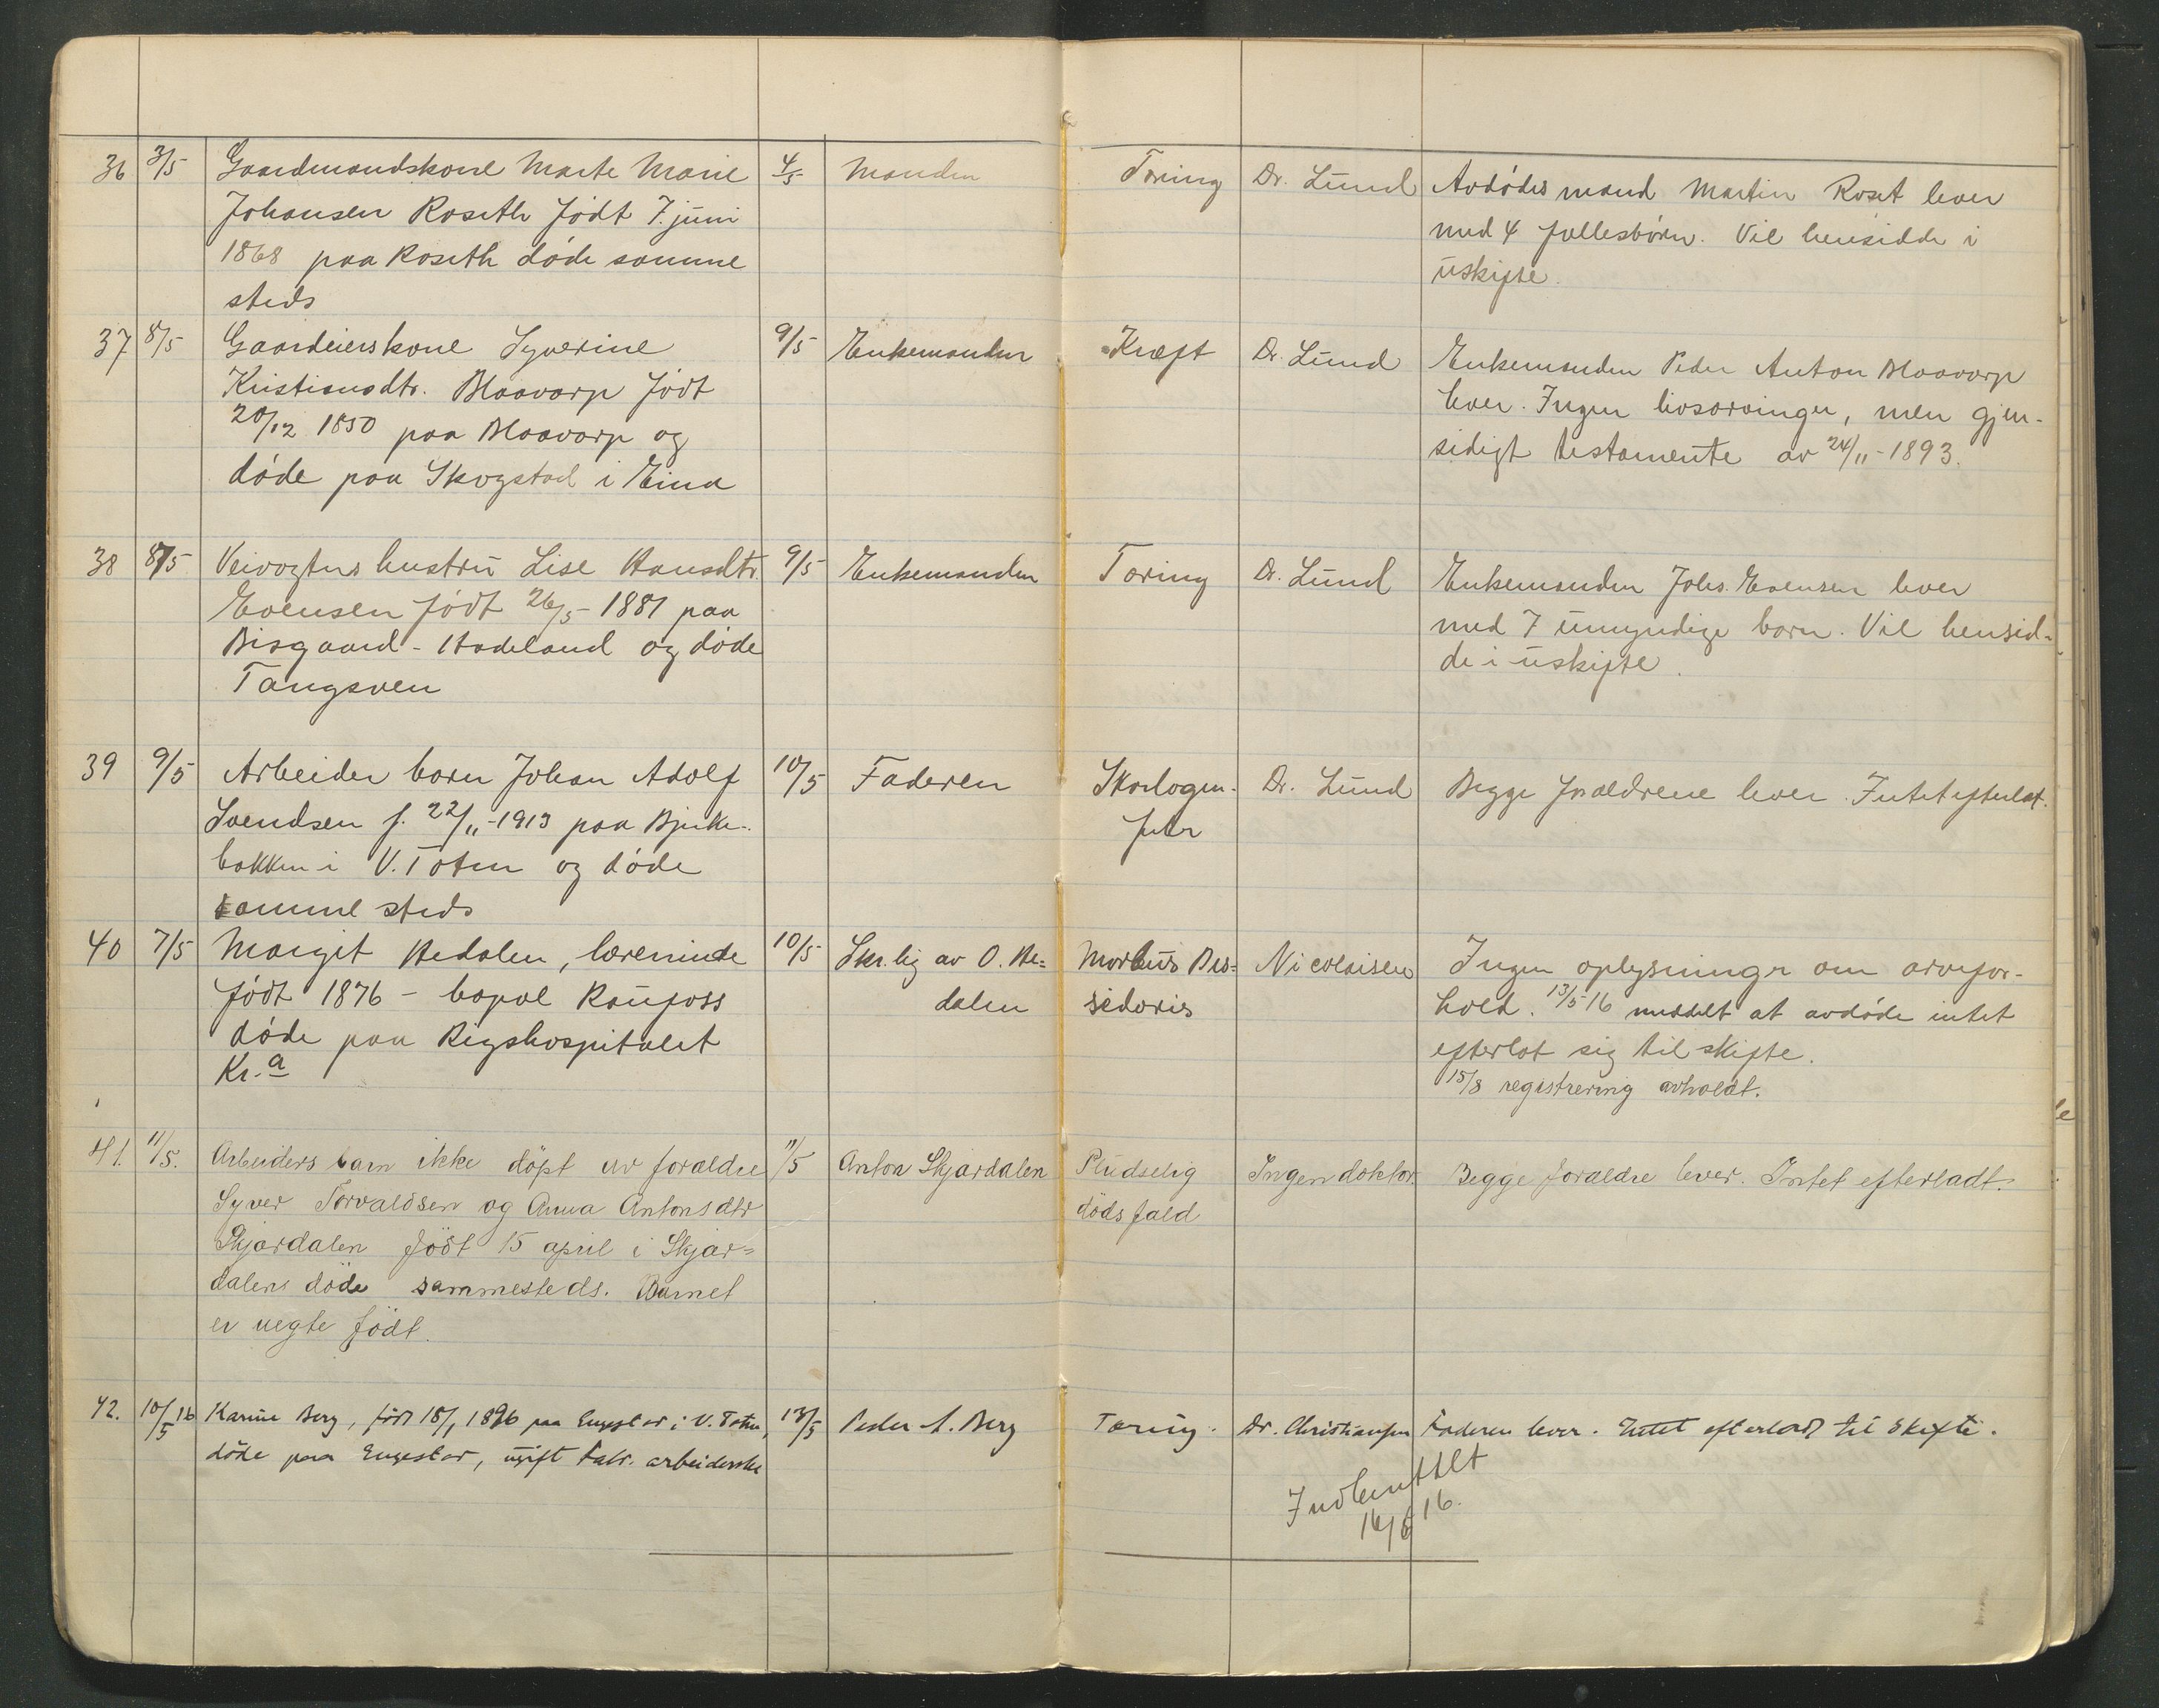 36 3/5 Gaardmandskone Marte Marie 4/5 Manden Tæring Dr. Lund Avdødes mand Martin Roset lever
Johansen Roseth født 7. juni med 4 fællesbørn. Vil hensidde i
1868 paa Roseth døde samme uskifte.
steds
37 8/5 Gaardeierskone Syverine 9/5 Enkemanden Kræft Dr. Lund Enkemanden Peder Anton Blaavarp
Kristiansdtr. Blaavarp født lever. Ingen livsarvinger, men gjen-
20/12 1850 paa Blaavarp og sidigt testamente av 24/11-1893.
døde paa Skogstad i Eina
38 8/5 Veivogters hustru Lise Hansdtr. 9/5 Enkemanden Tæring Dr. Lund Enkemanden Johs. Evensen lever
Evensen født 26/5-1881 paa med 7 umyndige barn. Vil hensid-
Bisgaard - Hadeland og døde de i uskifte.
Tangsveen
39 9/5 Arbeider barn Johan Adolf 10/5 Faderen Skarlagen- Dr. Lund Begge forældrene lever. Intet efterlat.
Svendsen f. 22/11-1913 paa Bjerke- feber
bakken i V. Toten og døde
samme steds
40 7/5 Margit Hedalen, lærerinde 10/5 Skr.lig av O. He- Morbus Bas- Nicolaisen Ingen oplysninger om arvefor-
født 1876 - bopæl Raufoss dalen sedovis hold. 13/5-16 meddelt at avdøde intet
døde paa Rigshospitalet efterlot sig til skifte.
Kr.a 15/8 registrering avholdt.
41. 11/5. Arbeiders barn ikke döpt av forældre 11/5 Anton Skjardalen Pludselig Ingen doktor. Begge forældre lever. Intet efterladt.
Syver Torvaldsen og Anna Antonsdtr dödsfald
Skjardalen födt 15 april i Skjar-
dalen döde sammesteds. Barnet
er uegte födt.
42. 10/5 16 Karine Berg, født 18/1 1896 paa Engestad i V. Toten, 13/5 Peder A. Berg Tæring. Dr. Christiansen Faderen lever. Intet efterladt til skifte.
döde paa Engestad, ugift fabr. arbeiderske
Indberettet
16/5 16.